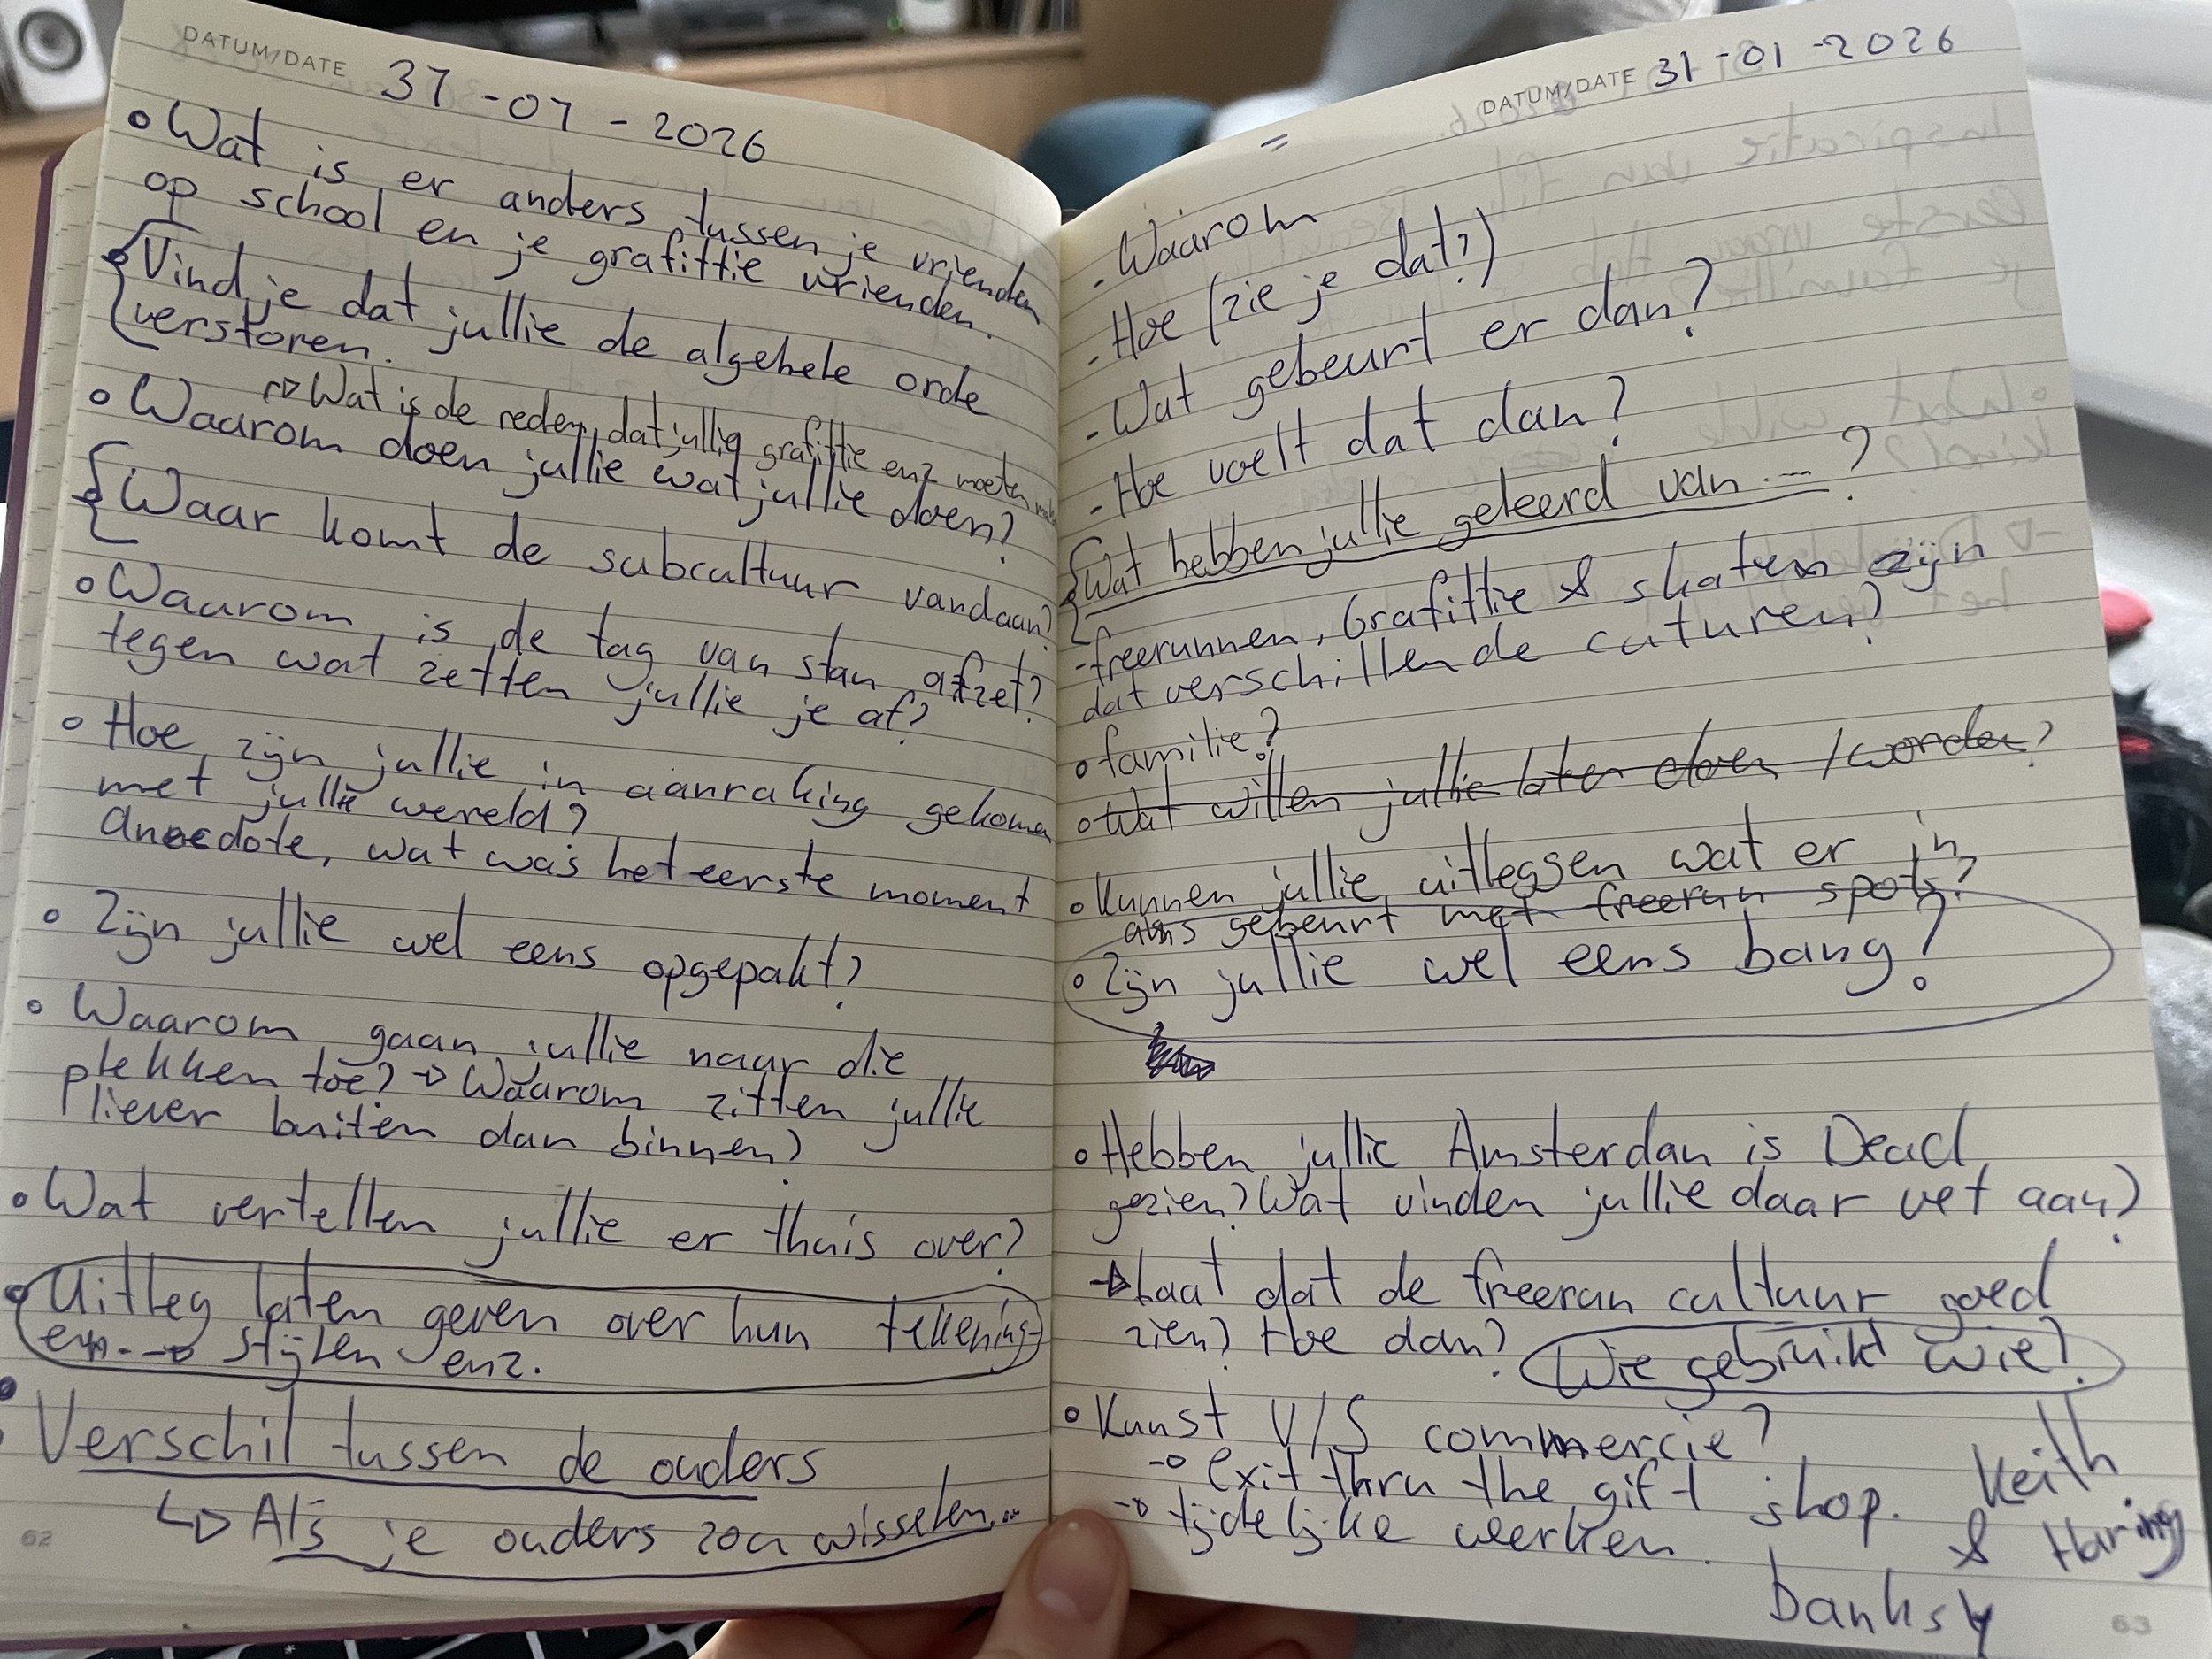 DATUM/DATE 31-01-2026
• Wat is er anders tussen je vrienden
op school en je grafittie vrienden.
Vind je dat jullie de algehele orde
verstoren.
→ Wat is de reden, dat jullie grafittie enz moeten
• Waarom doen jullie wat jullie doen?
Waar komt de subcultuur vandaan?
• Waarom is de tag van stan afzet?
tegen wat zetten jullie je af?
• Hoe zijn jullie in aanraking gekomen
met jullie wereld?
Anecdote, wat was het eerste moment
• Zijn jullie wel eens opgepakt?
• Waarom gaan jullie naar die
plekken toe? → Waarom zitten jullie
liever buiten dan binnen?
• Wat vertellen jullie er thuis over?
• Uitleg laten geven over hun tekening-
en --→ stijlen enz.
• Verschil tussen de ouders
↳ Als je ouders zou wisselen...
62
DATUM/DATE 31-01-2026
=
- Waarom
- Hoe (zie je dat?)
- Wat gebeurt er dan?
- Hoe voelt dat dan?
Wat hebben jullie geleerd van ...?
- freerunnen, Grafittie & skaten zijn
dat verschillende cuturen?
• familie?
• Wat willen jullie later doen / worden?
• Kunnen jullie uitleggen wat er in
gebeurt met freerun spots?
• Zijn jullie wel eens bang?
• Hebben jullie Amsterdan is Dead
gezien? Wat vinden jullie daar vet aan?
→ Laat dat de freerun cultuur goed
zien? Hoe dan? Wie gebruikt wie?
• Kunst V/S commercie?
→ Exit thru the gift shop. Keith
→ tijdelijke werken. & Haring
banksy
63